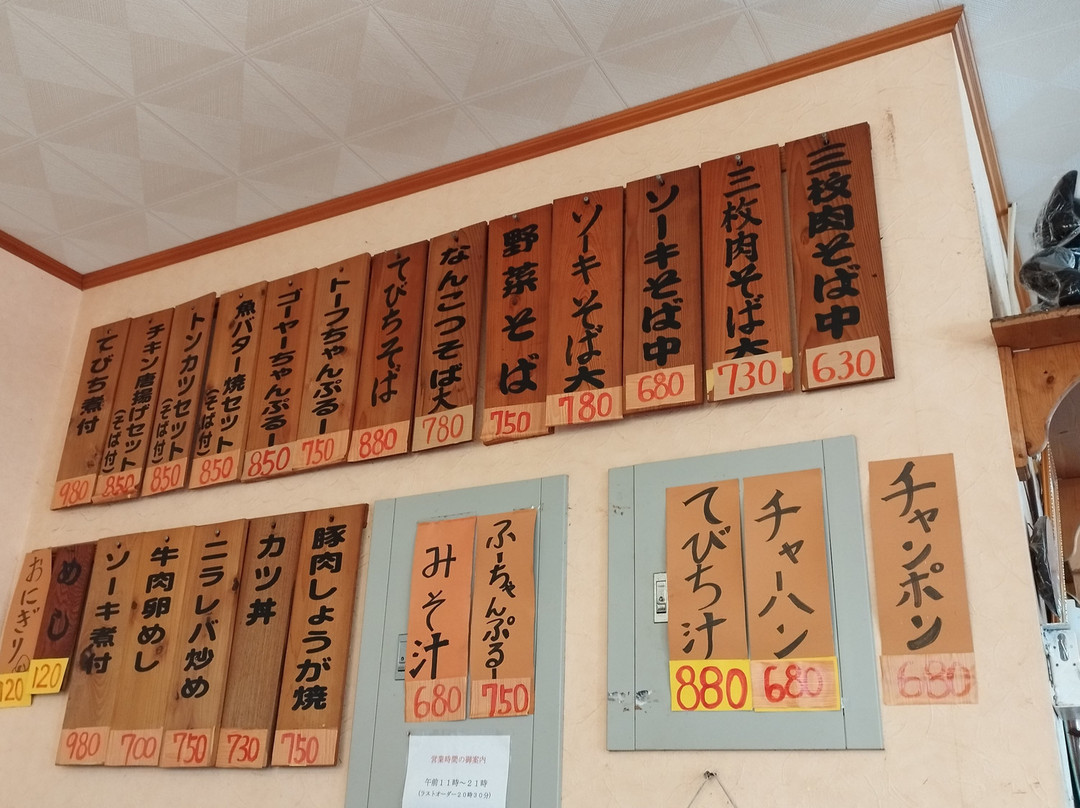 三枚肉そば中
630
三枚肉そば大
730
ソーキそば中
680
ソーキそば大
780
野菜そば
750
なんこつそば大
780
てびちそば
880
トーフちゃんぷるー
750
ゴーヤーちゃんぷるー
850
魚バター焼セット
(そば付)
850
トンカツセット
(そば付)
850
チキン唐揚げセット
(そば付)
850
てびち煮付
980
チャンポン
680
チャーハン
680
てびち汁
880
ふーちゃんぷるー
750
みそ汁
680
豚肉しょうが焼
750
カツ丼
730
ニラレバ炒め
750
牛肉卵めし
700
ソーキ煮付
980
めし
120
おにぎり
120
営業時間の御案内
午前11時～21時
(ラストオーダー20時30分)